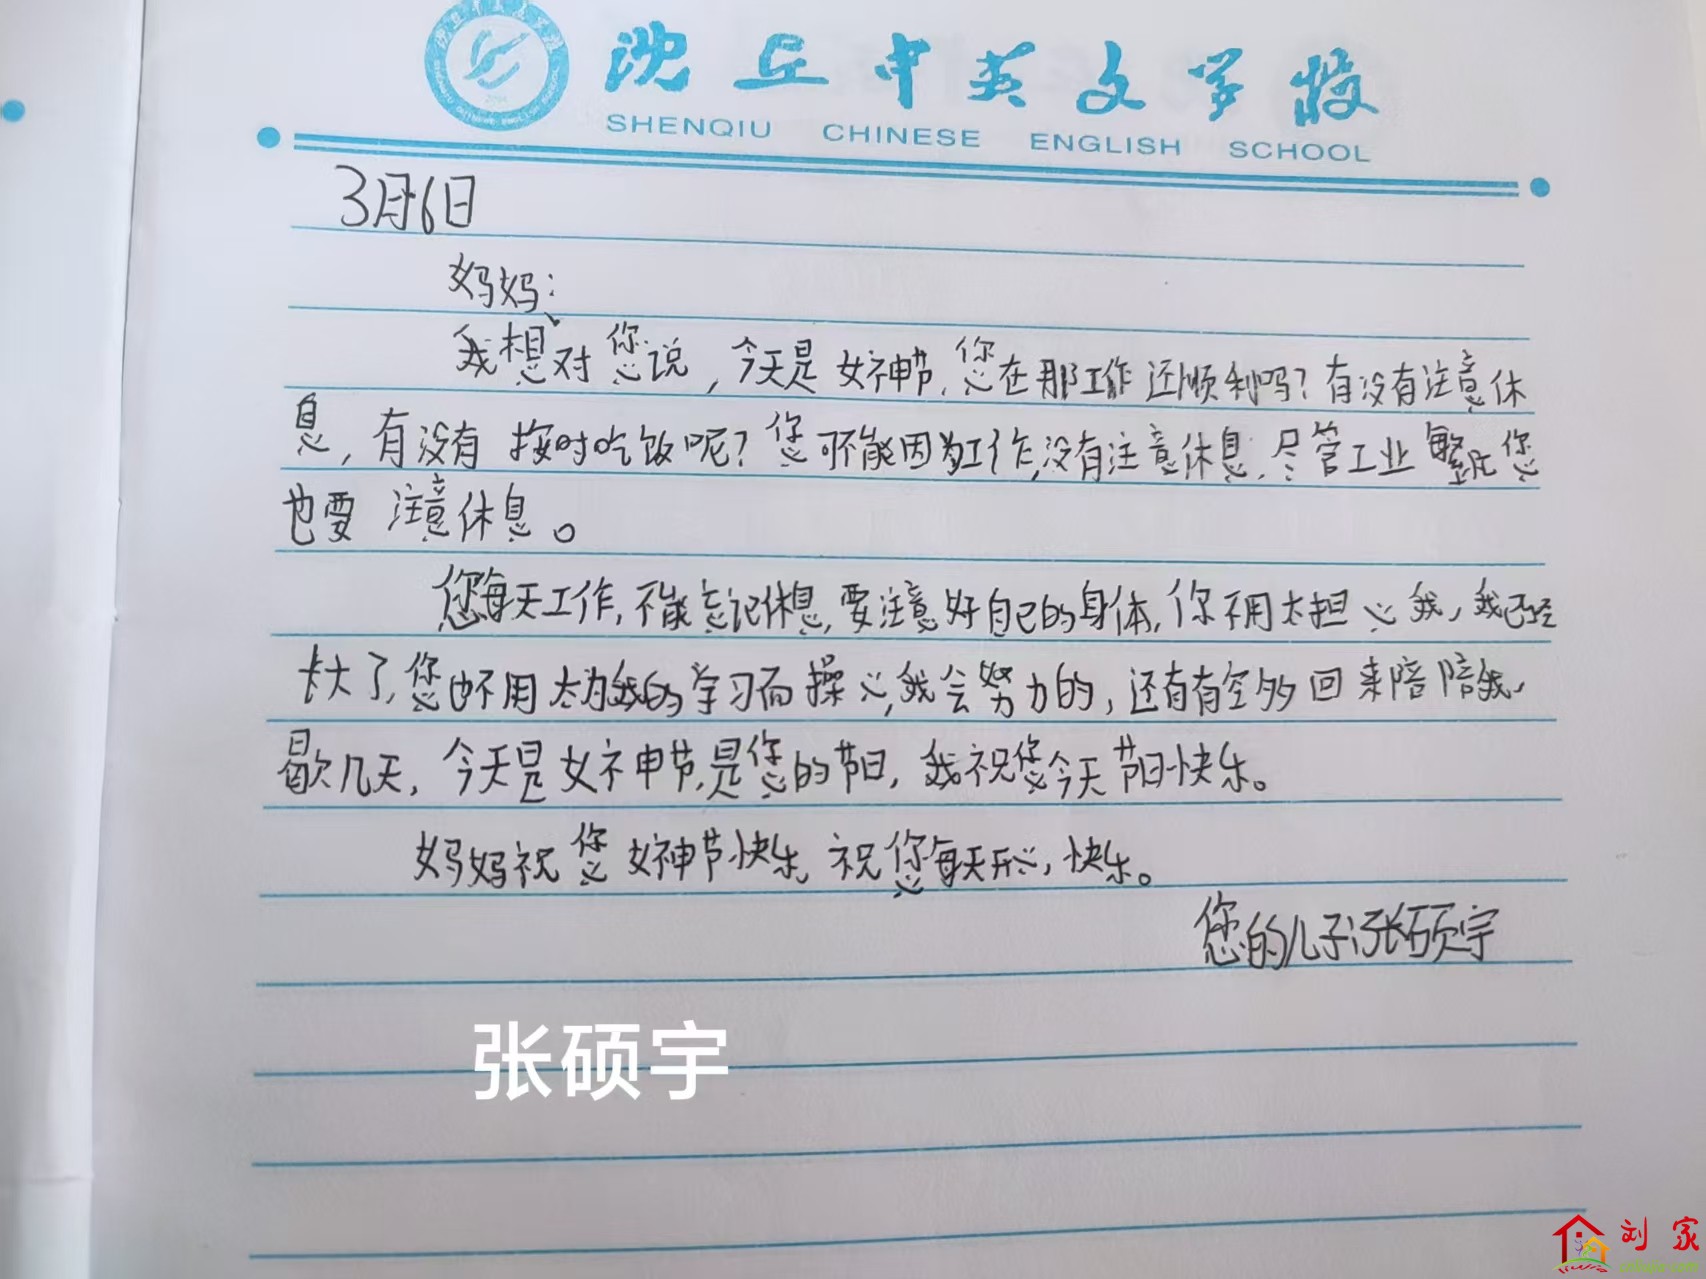 沈丘中英文学校
SHENQIU CHINESE ENGLISH SCHOOL
3月6日
妈妈：
我想对您说，今天是女神节，您在那工作还顺利吗？有没有注意休
息，有没有按时吃饭呢？您可不能因为工作，没有注意休息，尽管工业繁忙您
也要注意休息。
您每天工作，不能忘记休息，要注意好自己的身体，你不用太担心我，我已经
长大了，您也不用太为我的学习而操心，我会努力的，还有有空多回来陪陪我，
歇几天，今天是女神节，是您的节日，我祝您今天节日快乐。
妈妈祝您女神节快乐，祝您每天开心，快乐。
您的儿子：张硕宇
张硕宇
刘家